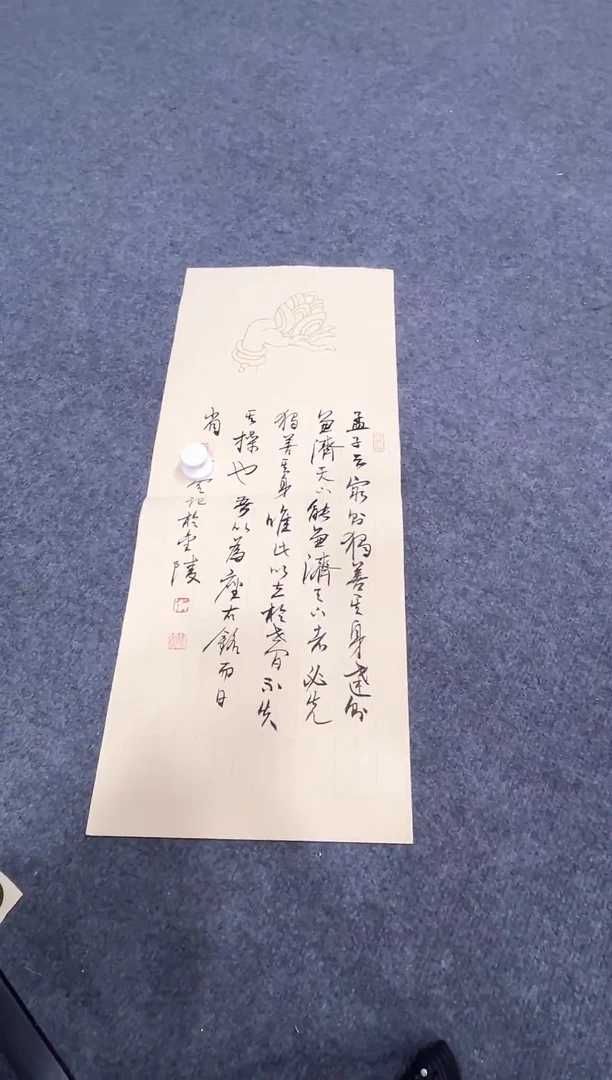 孟子云窮則獨善其身達則
兼濟天下能兼濟天下者必先
獨善其身唯此以立於世間不失
其操也吾以為座右銘而日
省
記於金陵